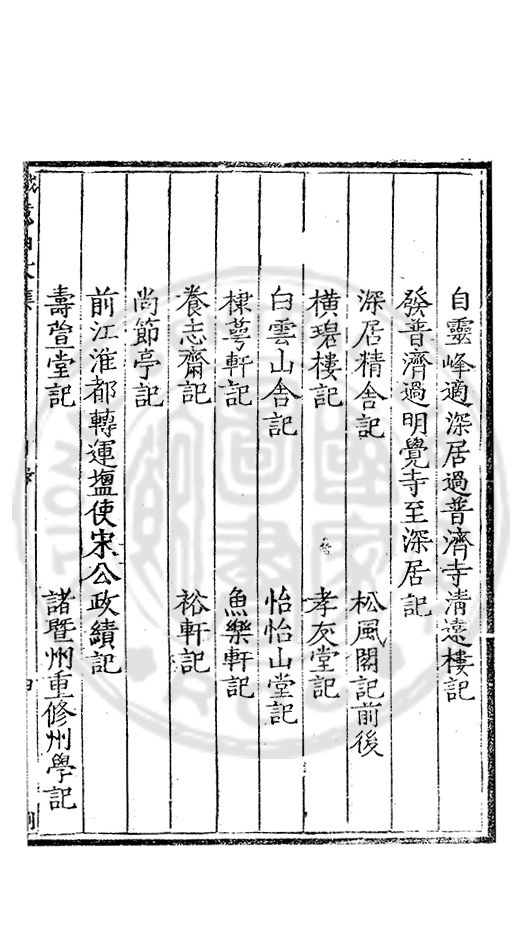 自靈峰適深居過普濟寺清遠樓記
發普濟過明覺寺至深居記
深居精舍記　松風閣記前後
橫碧樓記　孝友堂記
白雲山舍記　怡怡山堂記
棣萼軒記　魚樂軒記
養志齋記　裕軒記
尚節亭記
前江淮都轉運塩使宋公政績記
壽萱堂記　諸暨州重修州學記